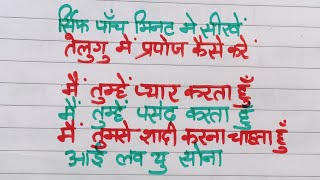 सिर्फ पाँच मिनट मे सीखें
तेलुगु मे प्रपोज कैसे करें
मैं तुम्हें प्यार करता हूँ
मैं तुम्हें पसंद करता हूँ
मैं तुमसे शादी करना चाहता हूँ
आई लव यु सोना